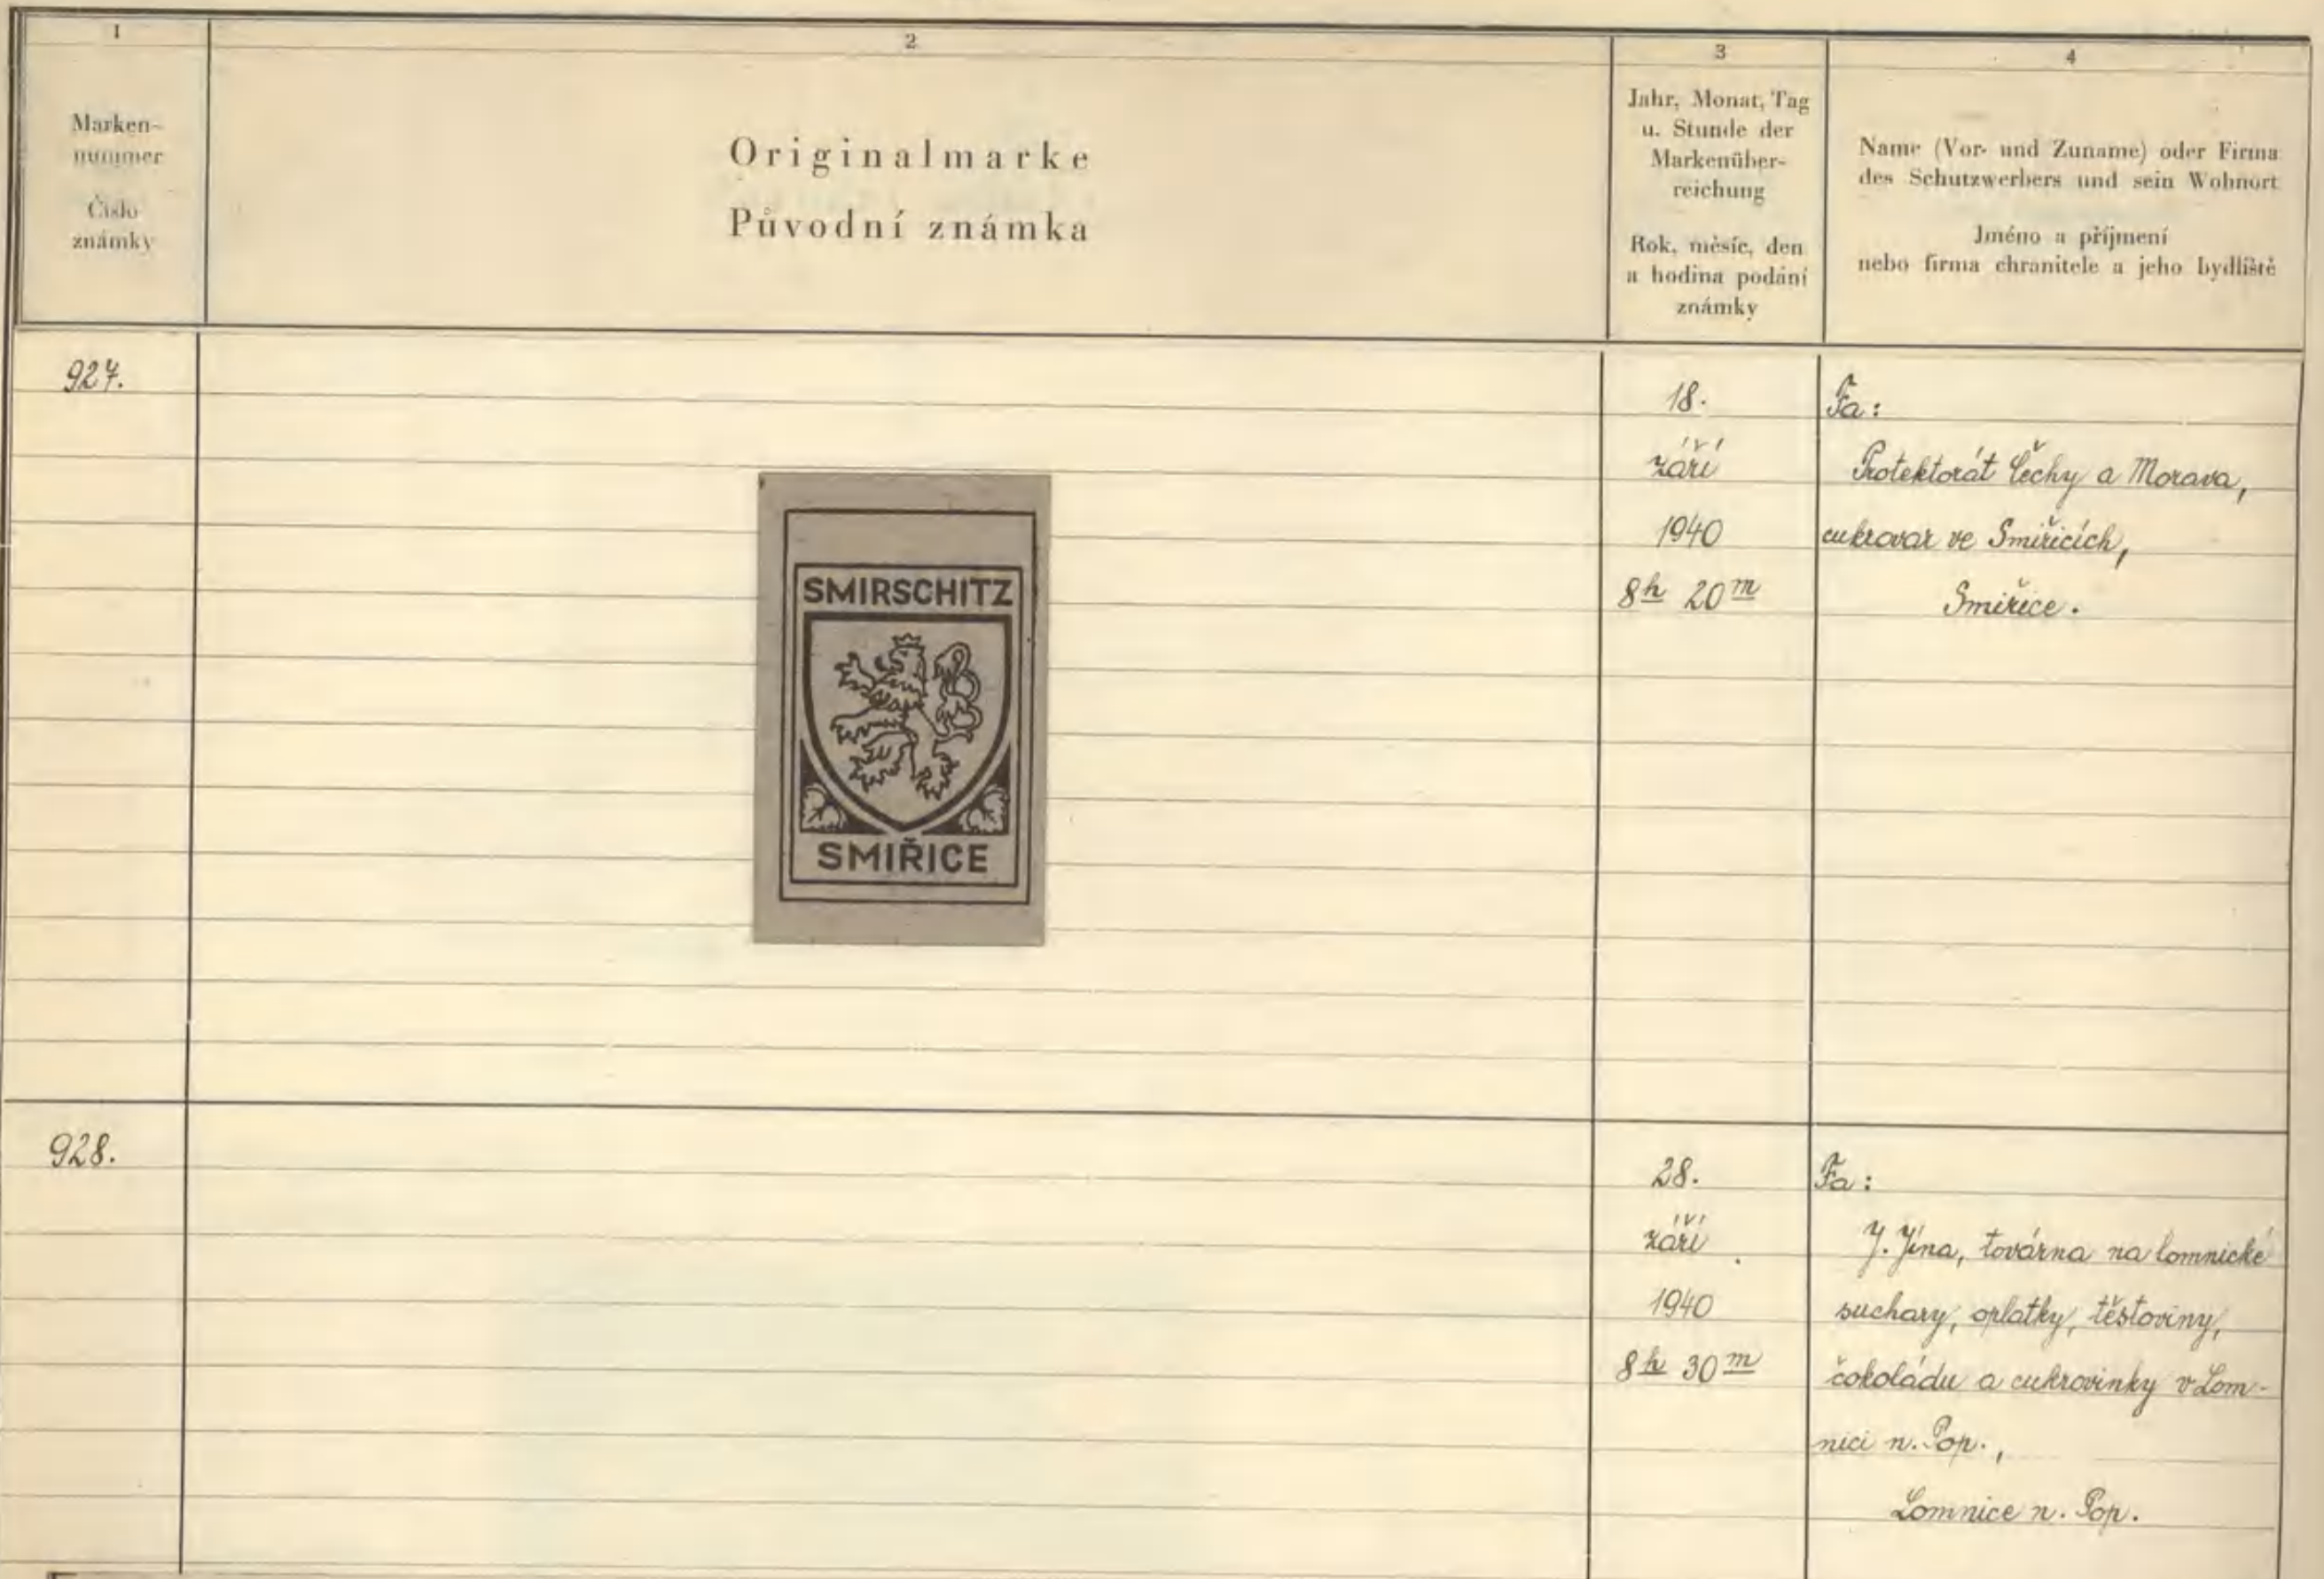 1
Marken-
nummer
Číslo
známky
2
Originalmarke
Původní známka
3
Jahr, Monat, Tag
u. Stunde der
Markenüber-
reichung
Rok, měsíc, den
a hodina podání
známky
4
Name (Vor- und Zuname) oder Firma
des Schutzwerbers und sein Wohnort
Jméno a příjmení
nebo firma chranitele a jeho bydliště
927.
SMIRSCHITZ
SMIŘICE
18.
září
1940
8h 20m
Fa:
Protektorát Čechy a Morava,
cukrovar ve Smiřicích,
Smiřice.
928.
28.
září
1940
8h 30m
Fa:
J. Jína, továrna na lomnické
suchary, oplatky, těstoviny,
čokoládu a cukrovinky v Lom-
nici n. Pop.,
Lomnice n. Pop.